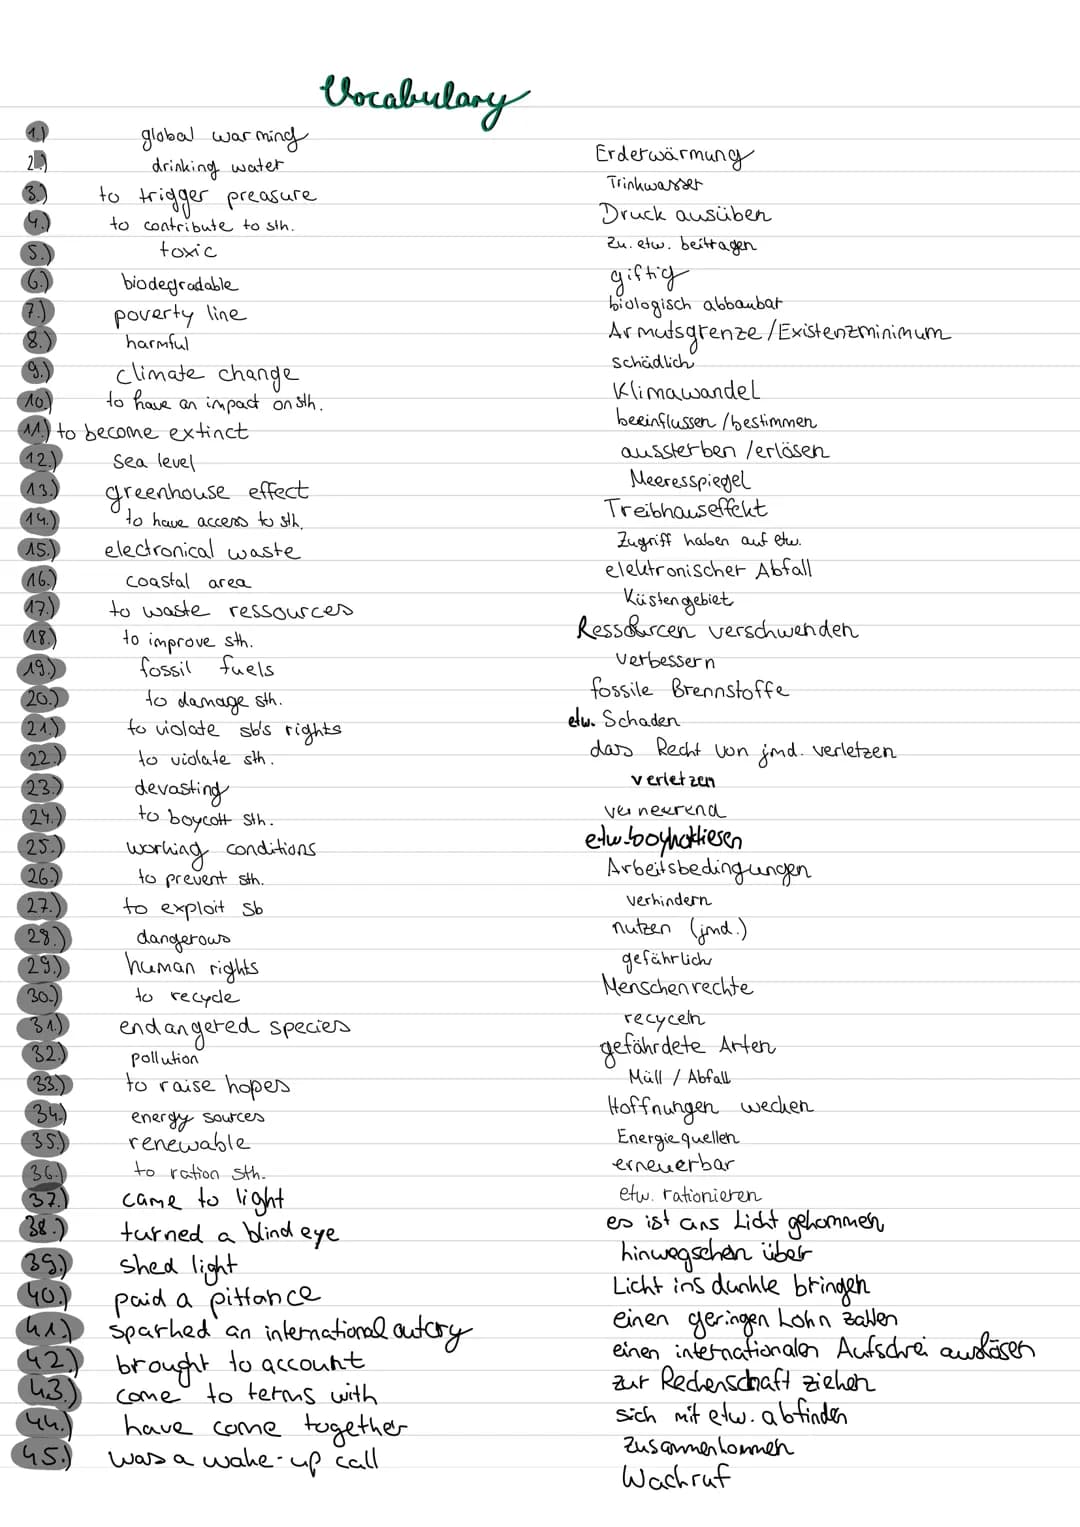 Vocabulary
1.) global warming Erderwärmung
2.) drinking water Trinkwasser
3.) to trigger preasure Druck ausüben
4.) to contribute to sth. zu. etw. beitragen
5.) toxic giftig
6.) biodegradable biologisch abbaubar
7.) poverty line Armutsgrenze/Existenzminimum
8.) harmful schädlich
9.) climate change Klimawandel
10.) to have an impact on sth. beeinflussen /bestimmen
11.) to become extinct aussterben /erlösen
12.) Sea level Meeresspiegel
13.) greenhouse effect Treibhauseffekt
14.) to have access to sth. Zugriff haben auf etw.
15.) electronical waste elektronischer Abfall
16.) coastal area Küstengebiet
17.) to waste ressources Ressourcen verschwenden
18.) to improve sth. verbessern
19.) fossil fuels fossile Brennstoffe
20.) to damage sth. etw. Schaden
21.) to violate sb's rights das Recht von jmd. verletzen
22.) to violate sth. verletzen
23.) devasting verneerend
24.) to boycott sth. etw. boykottiesen
25.) working conditions Arbeitsbedingungen
26.) to prevent sth. verhindern
27.) to exploit sb nutzen (jmd.)
28.) dangerous gefährlich
29.) human rights Menschenrechte
30.) to recycle recyceln
31.) endangered species gefährdete Arten
32.) pollution Müll / Abfall
33.) to raise hopes Hoffnungen wecken
34.) energy sources Energiequellen
35.) renewable erneuerbar
36.) to ration sth. etw. rationieren
37.) came to light es ist ans Licht gekommen
38.) turned a blind eye hinwegsehen über
39.) shed light Licht ins dunkle bringen
40.) paid a pittance einen geringen Lohn zahlen
41.) sparked an international outcry einen internationalen Aufschrei auslösen
42.) brought to account zur Rechenschaft ziehen
43.) come to terms with sich mit etw. abfinden
44.) have come together zusammenkommen
45.) was a wake-up call Wachruf